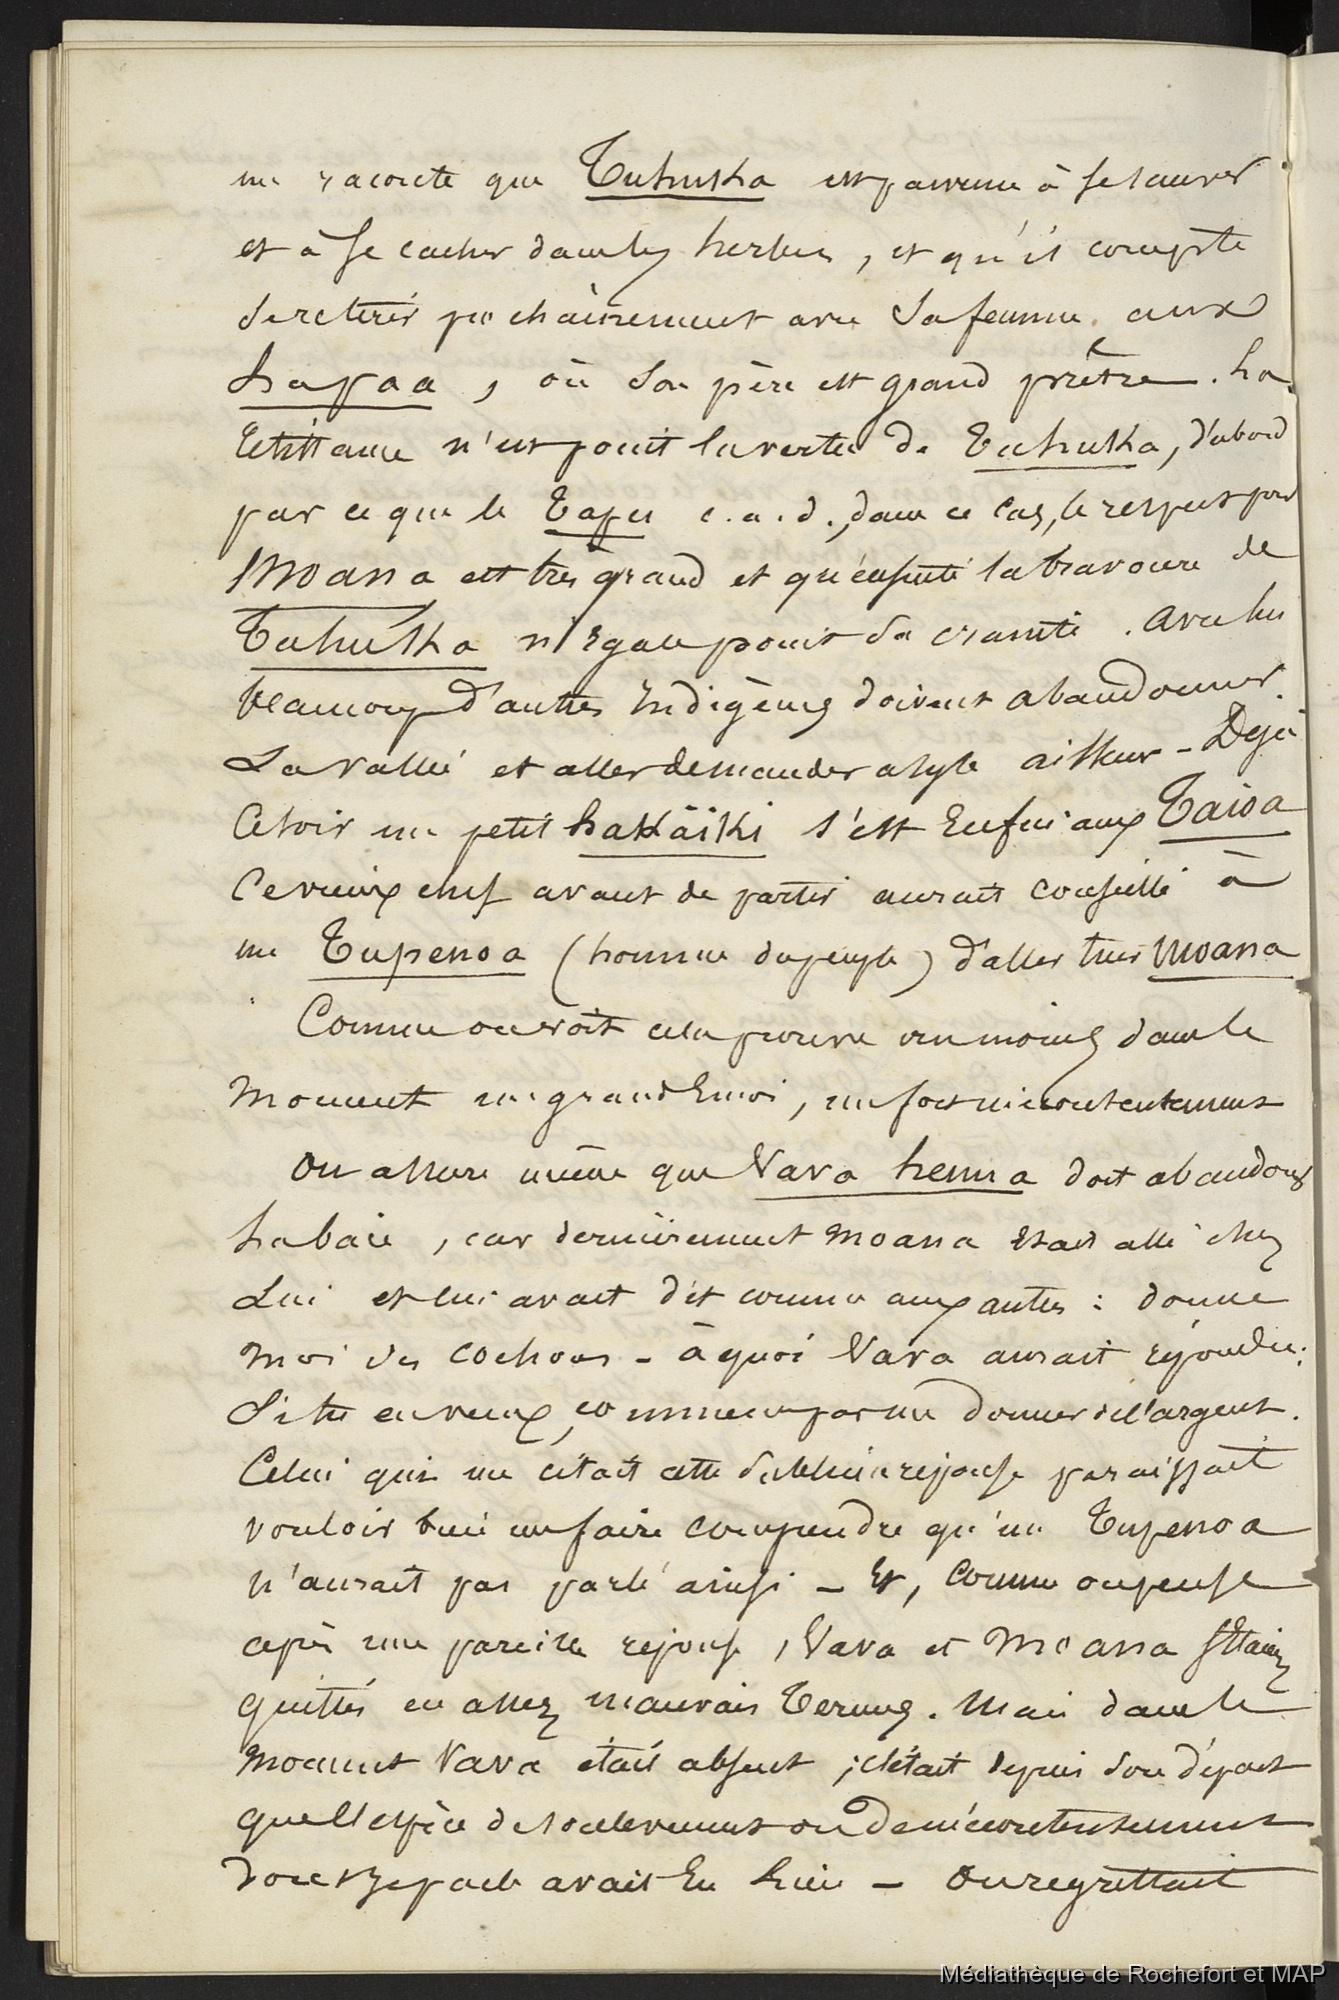 me raconte que Tuhutka est parvenu à se sauver
et à se cacher dans les herbes, et qu'il compte
se retirer prochainement avec sa femme aux
hapaa, où son père est grand prêtre. La
résistance n'est point la vertu de Tuhutka, d'abord
parce que le Tapu c.a.d., dans ce cas, le respect pour
Moana est très grand et qu'ensuite la bravoure de
Tuhutka n'égale point sa cruauté. Avec lui
beaucoup d'autres indigènes doivent abandonner
La vallée et aller demander asyle ailleur - Déjà
Ce soir un petit hakaïki s'est enfui aux Taioa
Ce vieux chef avant de partir aurait conseillé à
un Tupenoa (homme du peuple) d'aller tuer Moana
Comme on voit cela prouve au moins dans le
moment un grand émoi, un fort mécontentement
On assure même que Vava henua doit abandonner
La baie, car dernièrement Moana était allé chez
Lui et lui avait dit comme aux autres : donne
moi des cochons - à quoi Vava aurait répondu :
Si tu en veux, commence par me donner de l'argent.
Celui qui me citait cette sublime réponse paraissait
vouloir bien me faire comprendre qu'un Tupenoa
n'aurait pas parlé ainsi - Et, comme on pense
après une pareille réponse, Vava et Moana s'étaient
quittés en assez mauvais termes. Mais dans le
moment Vava était absent ; c'était depuis son départ
que l'espèce de soulevement ou de mécontentement
dont je parle avait eu lieu - On regrettait
Médiathèque de Rochefort et MAP